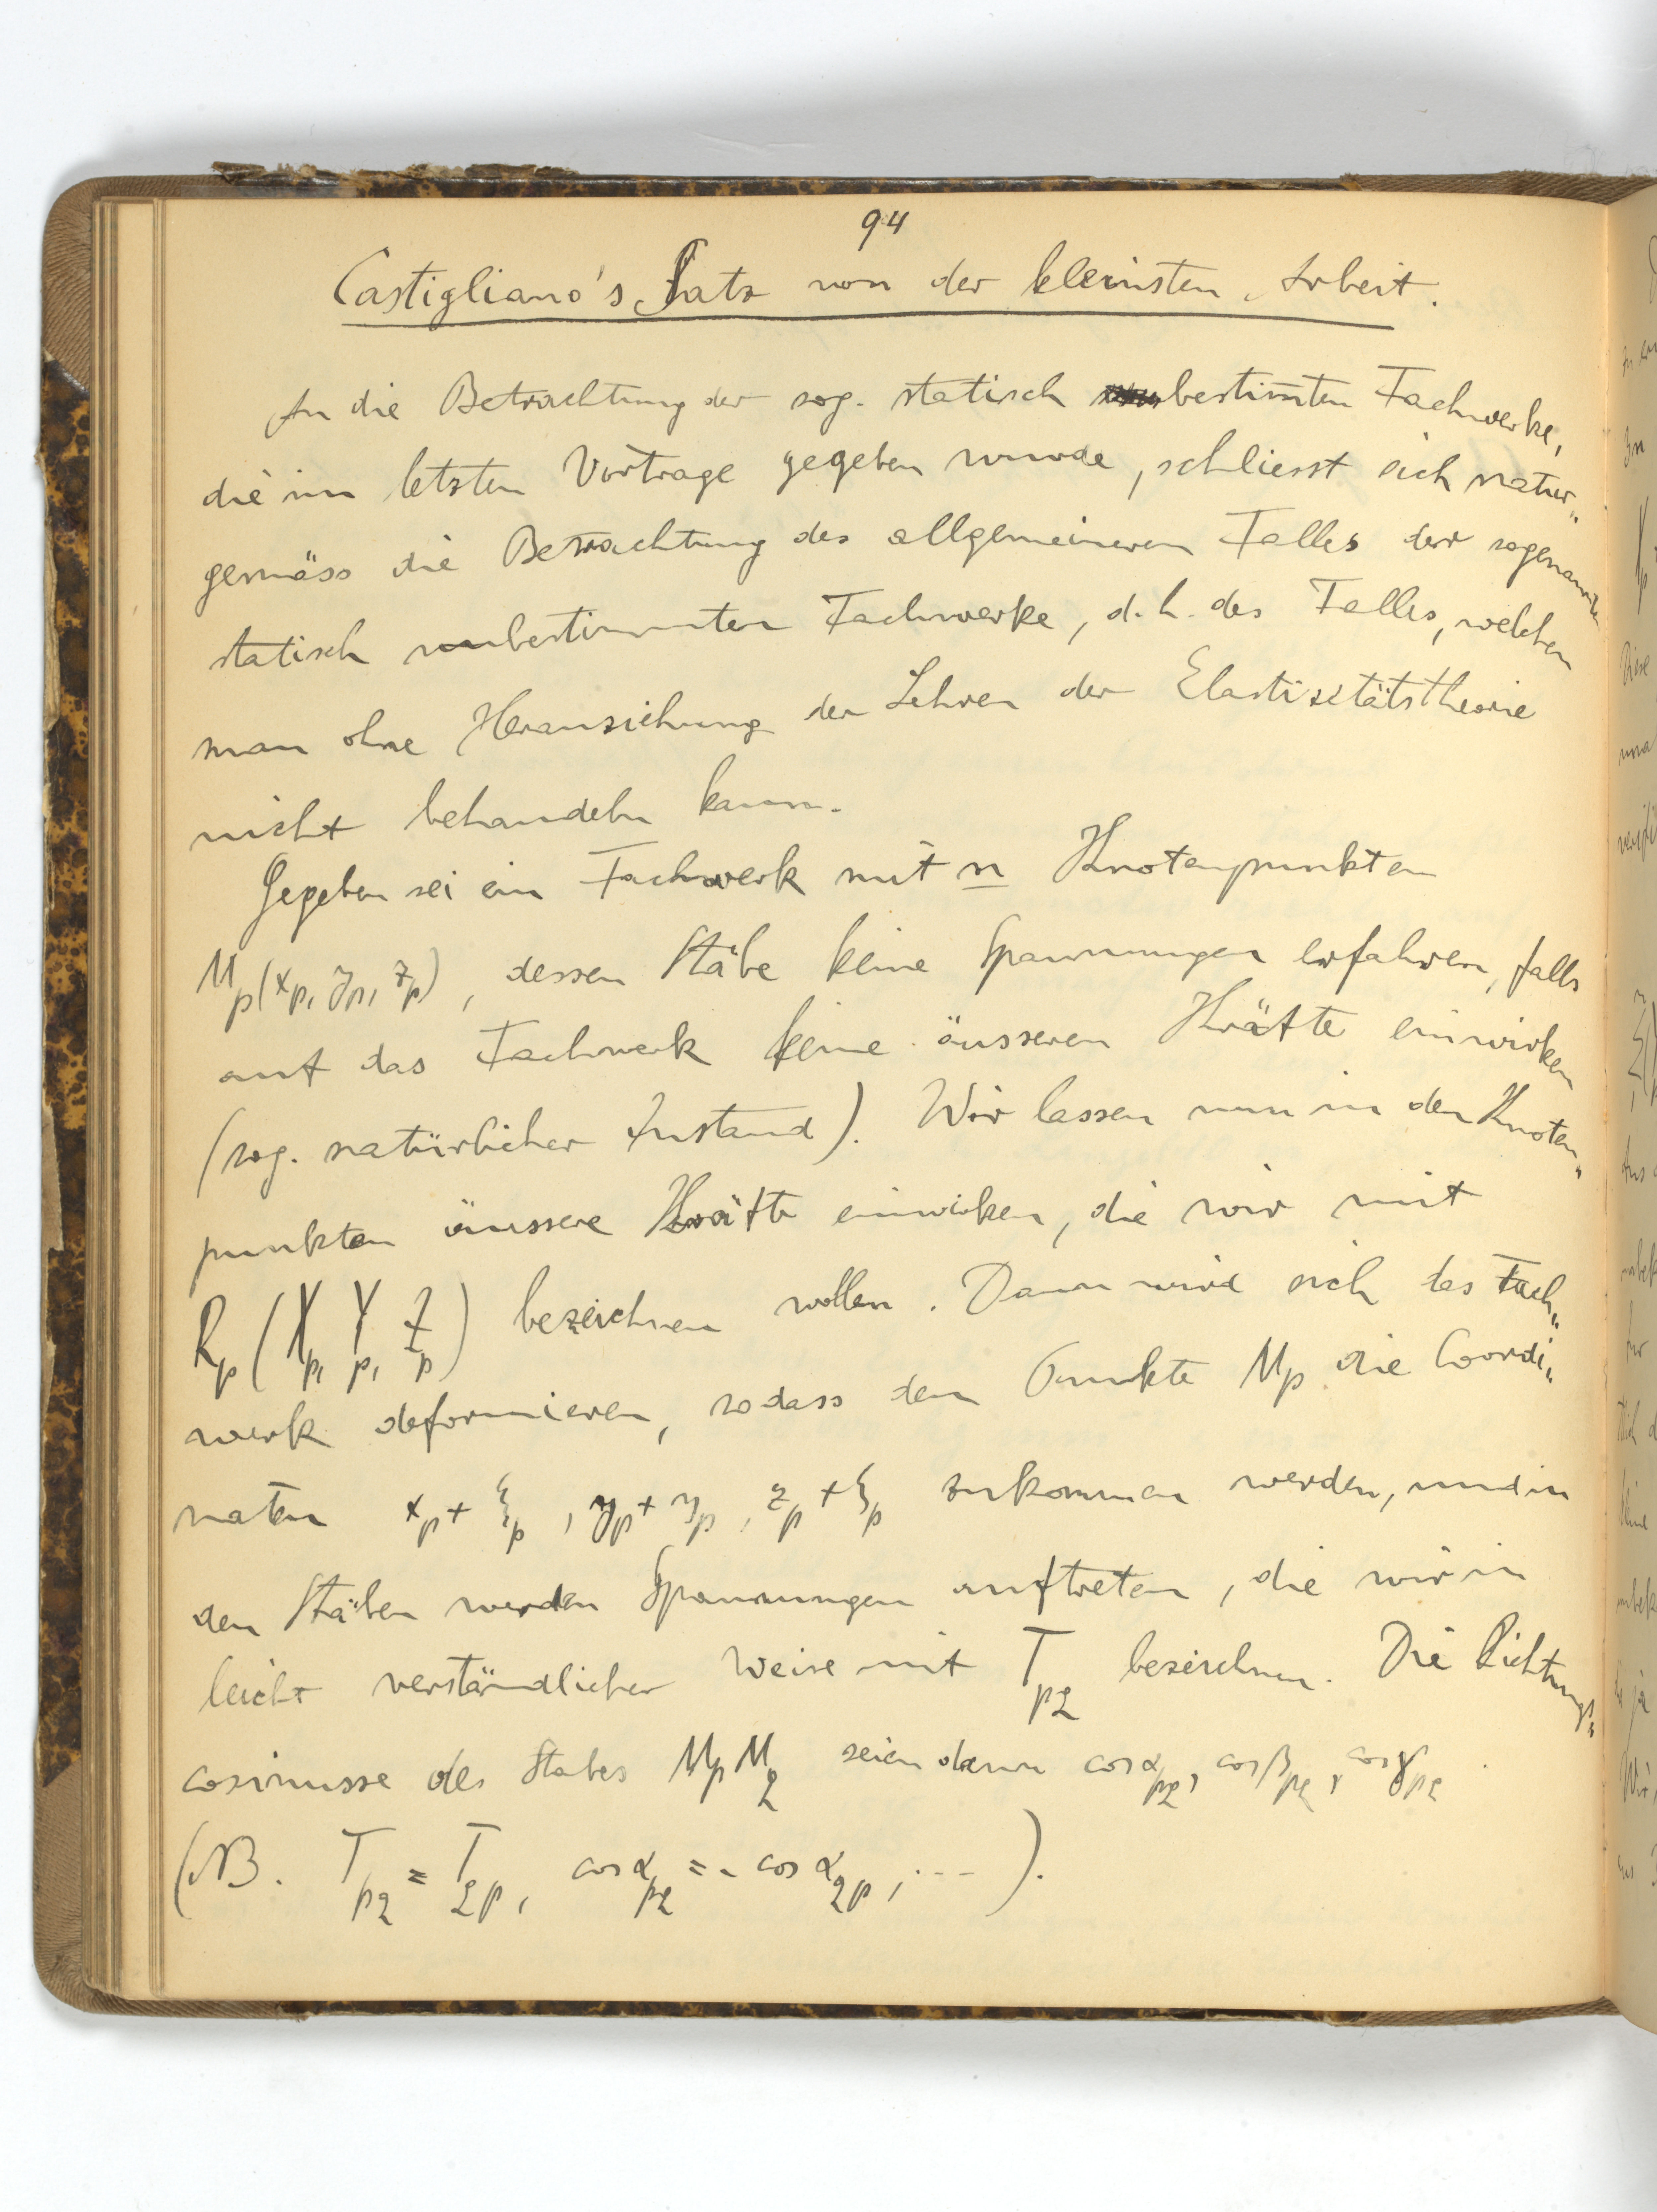 94
Castigliano's Satz von der kleinsten Arbeit.
An die Betrachtung der sog. statisch bestim̄ten Fachwerke,
die im letzten Vortrage gegeben wurde, schliesst sich natur„
gemäss die Betrachtung des allgemeineren Falles der sogenannten
statisch unbestimmten Fachwerke, d.h. des Falles, welchen
man ohne Heranziehung der Lehren der Elastizitätstheorie
nicht behandeln kann.
Gegeben sei ein Fachwerk mit n Knotenpunkten
Mp(xp, yp, zp), dessen Stäbe keine Spannungen erfahren, falls
auf das Fachwerk keine äusseren Kräfte einwirken
(sog. natürlicher Zustand). Wir lassen nun in den Knoten„
punkten äussere Kräfte einwirken, die wir mit
Rp (Xp, Yp, Zp) bezeichnen wollen. Dann wird sich das Fach„
werk deformieren, sodass dem Punkte Mp die Coordi„
naten xp + ξp, yp + ηp, zp + ζp zukommen werden, und in
den Stäben werden Spannungen auftreten, die wir in
leicht verständlicher Weise mit Tpq bezeichnen. Die Richtungs„
cosinusse des Stabes MpMq seien dann cosαpq, cosβpq, cosγpq.
(NB. Tpq = Tqp, cosαpq = - cosαqp, --- ).